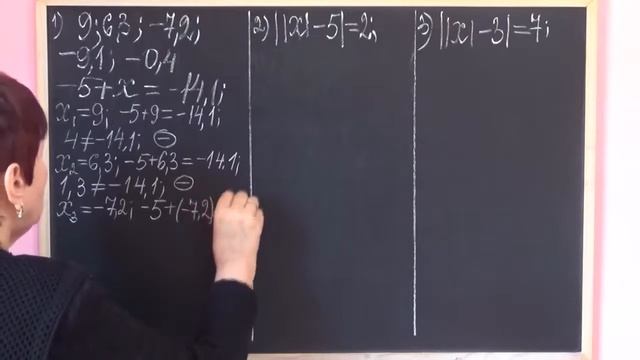 1) 9; 6,3; -7,2;
-9,1; -0,4
-5+x = -14,1;
x₁=9; -5+9=-14,1;
4≠-14,1; ⊖
x₂=6,3; -5+6,3=-14,1;
1,3≠-14,1; ⊖
x₃=-7,2; -5+(-7,2)
2) ||x|-5|=2;
3) ||x|-3|=7;